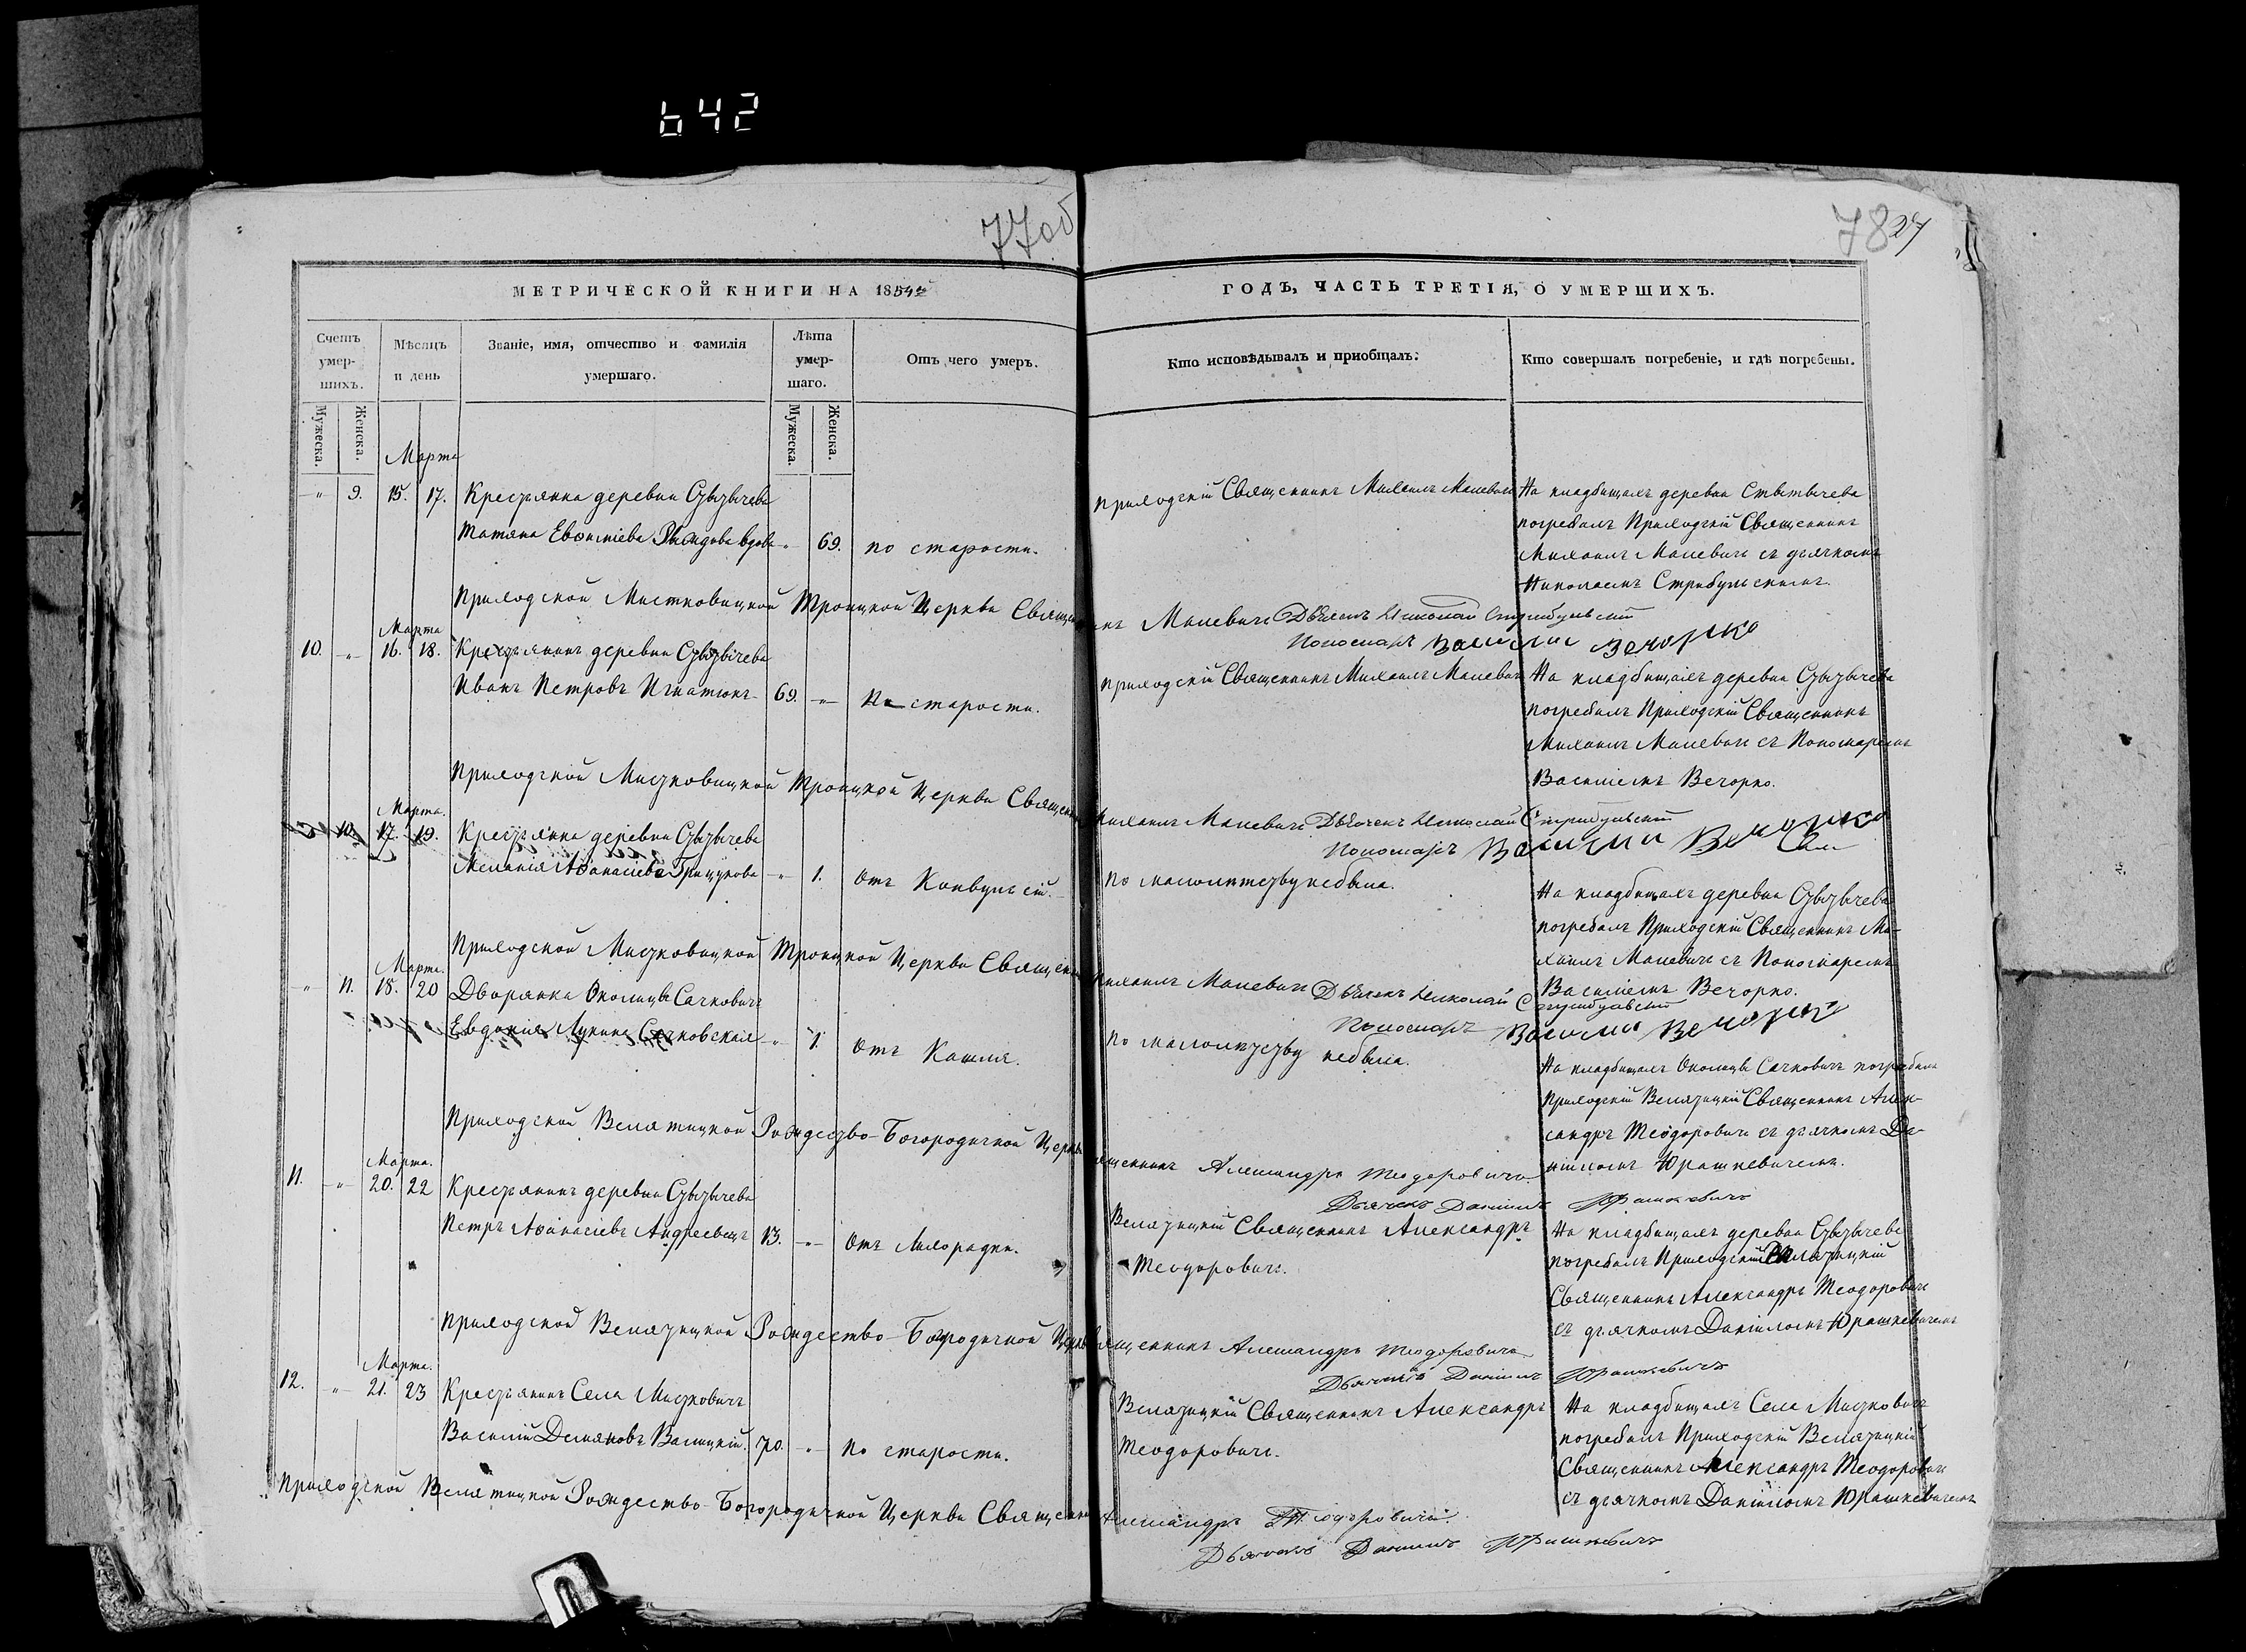 642
77об
78 27
МЕТРИЧЕСКОЙ КНИГИ НА 1854й
ГОДЪ, ЧАСТЬ ТРЕТІЯ, О УМЕРШИХЪ.
Счетъ умер-шихъ.
Мѣсяцъ и день
Званіе, имя, отчество и фамилія умершаго.
Лѣта умер-шаго.
Отъ чего умеръ.
Кто исповѣдывалъ и пріобщалъ.
Кто совершалъ погребеніе, и гдѣ погребены.
Мужеска.
Женска.
Мужеска.
Женска.
Марта
" 9. 15. 17. Крестянка деревни Стытычева
Татяна Евфиміева вдова " 69. по старости.
приходскій Священникъ Михаилъ Малевичъ
На кладбищахъ деревни Стытычева
погребалъ Приходскій Священникъ
Михаилъ Малевичъ съ дьячкомъ
Николаемъ Стрибульскимъ.
Приходской Мистковицкой Троицкой Церкви Священникъ Малевичъ Дьячекъ Николай Стрибульскій
Пономарь Василій Вечорко
Марта
10. " 16. 18. Крестянинъ деревни Стытычева
Иванъ Петровъ Игнатюкъ 69. " По старости.
приходскій Священникъ Михаилъ Малевичъ
На кладбищахъ деревни Стытычева
погребалъ Приходскій Священникъ
Михаилъ Малевичъ съ Пономаремъ
Василіемъ Вечорко.
Приходской Мистковицкой Троицкой Церкви Священникъ Михаилъ Малевичъ Дьячекъ Николай Стрибульскій
Пономарь Василій Вечорко
Марта.
10. 17. 19. Крестянка деревни Стытычева
Меланія Афанасіева Грицукова " 1. Отъ Конвульсій.
по малолѣтству небыла.
На кладбищахъ деревни Стытычева
погребалъ Приходскій Священникъ Ми-
хаилъ Малевичъ съ Пономаремъ
Василіемъ Вечорко.
Приходской Мистковицкой Троицкой Церкви Священникъ Михаилъ Малевичъ Дьячекъ Николай Стрибульскій
Пономарь Василій Вечорко
Марта.
" 11. 18. 20 Дворянка Околицы Сачковичъ
Евдокія Лукина Сачковская " 1. Отъ Кашля.
по малолѣтству небыла.
На кладбищахъ Околицы Сачковичъ погребалъ
Приходскій Велятицкій Священникъ Алек-
сандръ Теодоровичъ съ дьячкомъ Да-
ніиломъ Юрашкевичемъ.
Приходской Велятицкой Рождество-Богородичной Церкви Священникъ Александръ Теодоровичъ
Дьячекъ Даніилъ Юрашкевичъ
Марта.
11. " 20. 22 Крестянинъ деревни Стытычева
Петръ Афанасіевъ Андреевецъ 13. " Отъ Лихорадки.
Велятицкій Священникъ Александръ
Теодоровичъ.
На кладбищахъ деревни Стытычева
погребалъ Приходскій Велятицкій
Священникъ Александръ Теодоровичъ
съ дьячкомъ Даніиломъ Юрашкевичемъ
Приходской Велятицкой Рождество-Богородичной Церкви Священникъ Александръ Теодоровичъ
Дьячекъ Даніилъ Юрашкевичъ
Марта.
12. " 21. 23 Крестянинъ Села Мистковичъ
Василій Демяновъ Валицкій. 70. " По старости.
Велятицкій Священникъ Александръ
Теодоровичъ.
На кладбищахъ Села Мистковичъ
погребалъ Приходскій Велятицкій
Священникъ Александръ Теодоровичъ
съ дьячкомъ Даніиломъ Юрашкевичемъ
Приходской Велятицкой Рождество-Богородичной Церкви Священникъ Александръ Теодоровичъ
Дьячекъ Даніилъ Юрашкевичъ